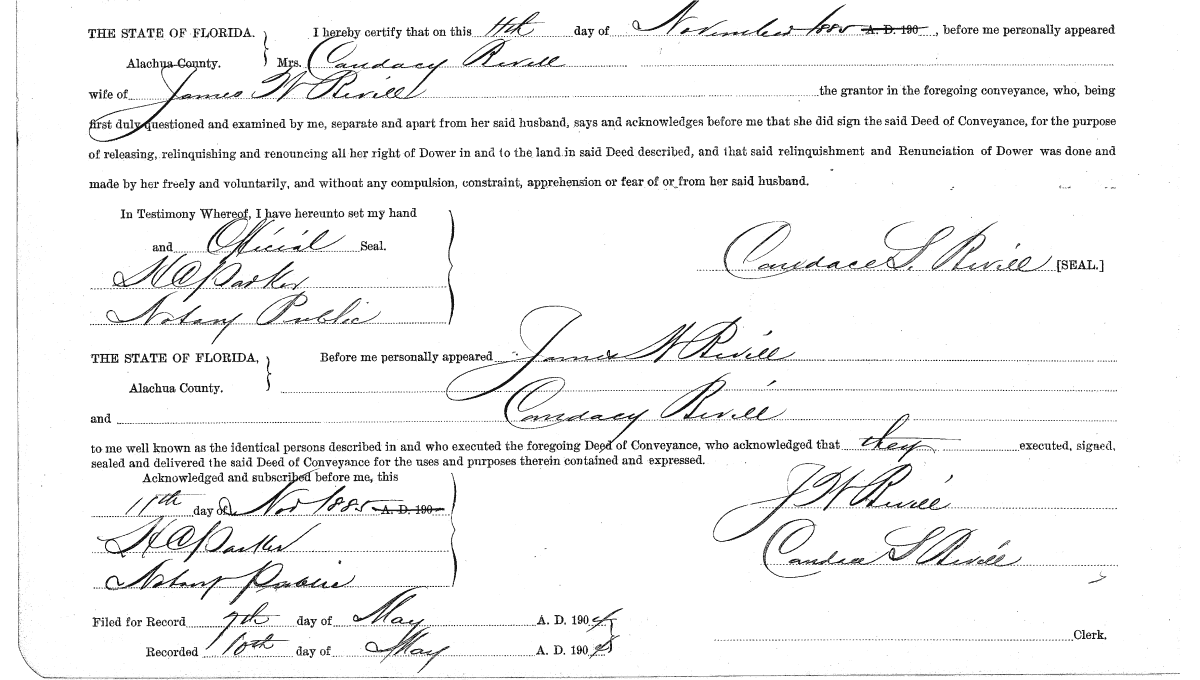 THE STATE OF FLORIDA. } I hereby certify that on this 11th day of November 1885 A. D. 190 , before me personally appeared
Alachua County. Mrs. Candacy Rivill
wife of James W Rivill the grantor in the foregoing conveyance, who, being
first duly questioned and examined by me, separate and apart from her said husband, says and acknowledges before me that she did sign the said Deed of Conveyance, for the purpose
of releasing, relinquishing and renouncing all her right of Dower in and to the land in said Deed described, and that said relinquishment and Renunciation of Dower was done and
made by her freely and voluntarily, and without any compulsion, constraint, apprehension or fear of or from her said husband.
In Testimony Whereof, I have hereunto set my hand
and Official Seal.
Candace S. Rivill [SEAL.]
H C Parker
Notary Public
THE STATE OF FLORIDA, } Before me personally appeared James W Rivill
Alachua County.
and Candacy Rivill
to me well known as the identical persons described in and who executed the foregoing Deed of Conveyance, who acknowledged that they executed, signed,
sealed and delivered the said Deed of Conveyance for the uses and purposes therein contained and expressed.
Acknowledged and subscribed before me, this
11th day of Nov 1885 A. D. 190
J W Rivill
H C Parker
Candice S Rivill
Notary Public
Filed for Record 7th day of May A. D. 190
Clerk.
Recorded 10th day of May A. D. 190